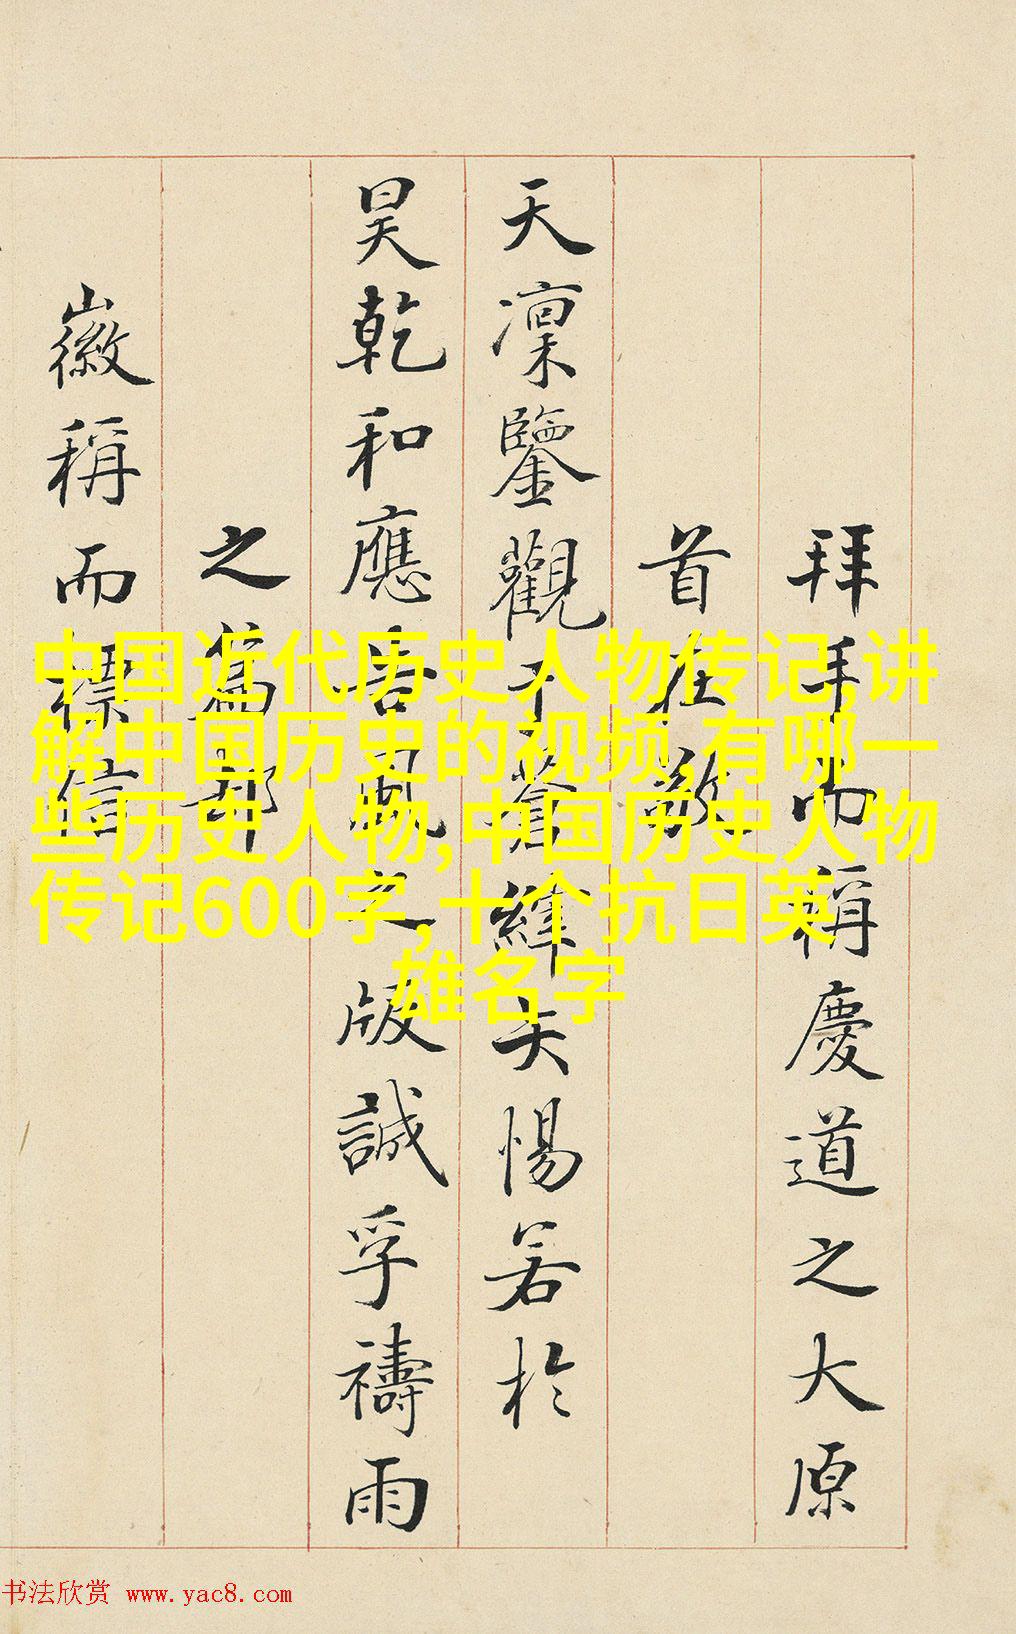 拜手而稱慶道之大原
首在敬
天凜鑒觀不緯夫惕若於
昊乾和應風之版誠孚禱雨
之爲
徽稱而標信
中国近代历史人物传记,讲
解中国历史的视频,有哪一
些历史人物,中国历史人物
传记600字,十个抗日英
雄名字
书法欣赏 www.yac8.com